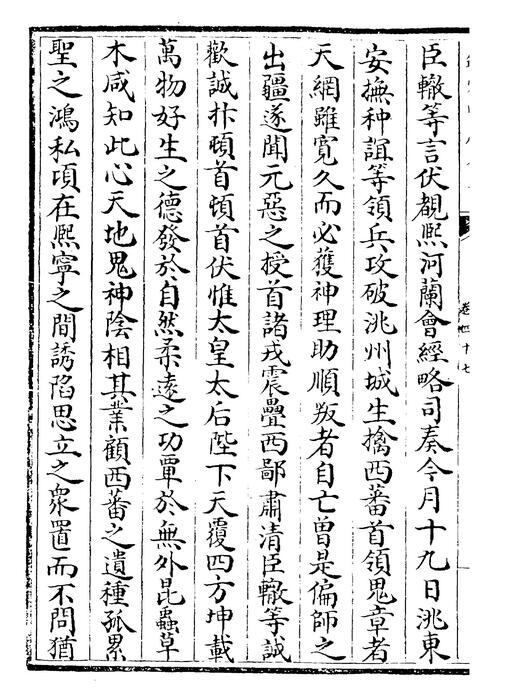 臣轍等言伏覩熙河蘭會經略司奏今月十九日洮東
安撫种誼等領兵攻破洮州城生擒西蕃首領鬼章者
天網雖寛久而必獲神理助順叛者自亡曽是偏師之
出疆遂聞元惡之授首諸戎震疊西鄙肅清臣轍等誠
歡誠抃頓首頓首伏惟太皇太后陛下天覆四方坤載
萬物好生之德發於自然柔逺之功覃於無外昆蟲草
木咸知此心天地鬼神陰相其業顧西蕃之遺種孤累
聖之鴻私項在熙寧之間誘陷思立之衆置而不問猶
卷四十七